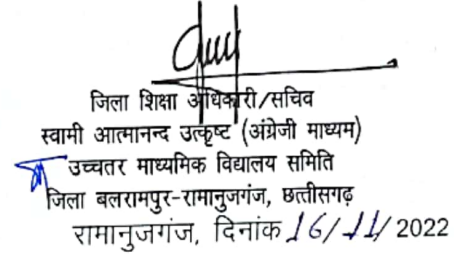 जिला शिक्षा अधिकारी/सचिव
स्वामी आत्मानन्द उत्कृष्ट (अंग्रेजी माध्यम)
उच्चतर माध्यमिक विद्यालय समिति
जिला बलरामपुर-रामानुजगंज, छत्तीसगढ़
रामानुजगंज, दिनांक 16/11/2022